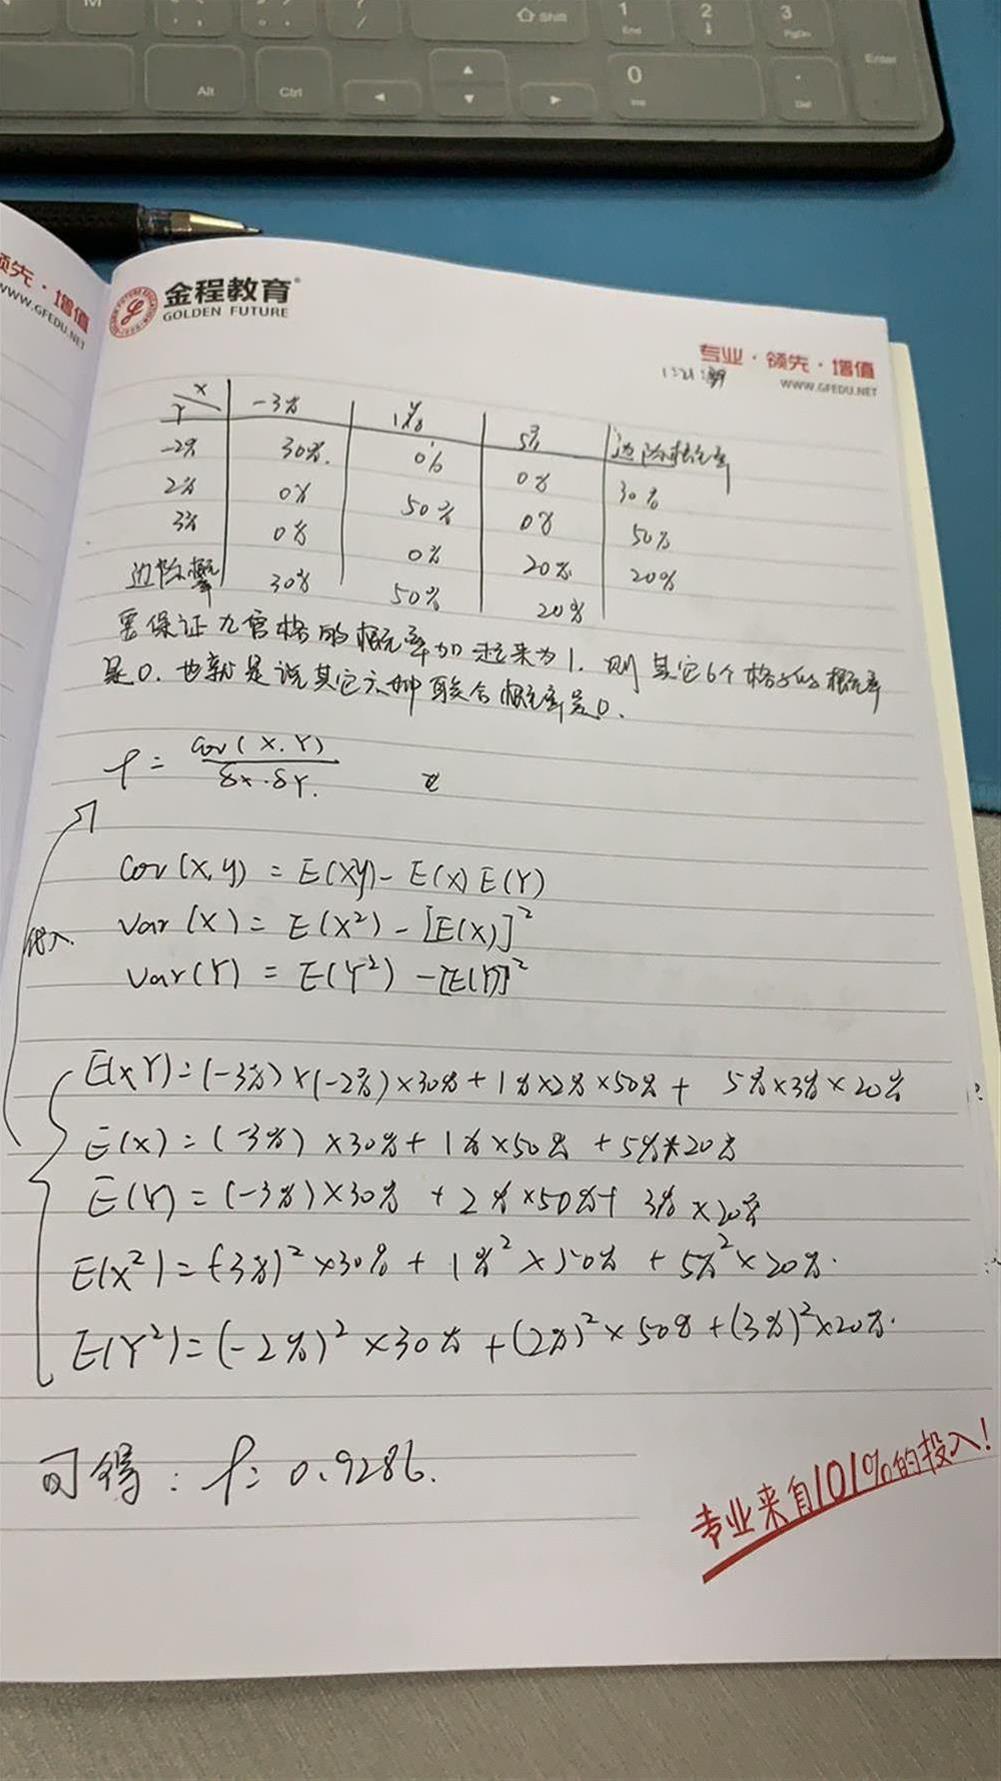 Alt
Ctrl
Shift
1
End
2
3
PgDn
0
Ins
.
Del
Enter
领先·增值
WWW.GFEDU.NET
金程教育
GOLDEN FUTURE
专业·领先·增值
WWW.GFEDU.NET
X -3% 1% 5% 边际概率
Y
-2% 30% 0% 0% 30%
2% 0% 50% 0% 50%
3% 0% 0% 20% 20%
边际概率 30% 50% 20%
要保证九宫格的概率加起来为1.则其它6个格子的概率
是0.也就是说其它六种联合概率是0.
ρ = cov(X.Y) / δx·δY.
Cov(X,y) = E(XY) - E(X)E(Y)
Var(X) = E(X²) - [E(X)]²
Var(Y) = E(Y²) - [E(Y)]²
代入.
E(XY) = (-3%)×(-2%)×30% + 1%×2%×50% + 5%×3%×20%
E(X) = (-3%)×30% + 1%×50% + 5%*20%
E(Y) = (-3%)×30% + 2%×50% + 3%×20%
E(X²) = (-3%)²×30% + 1%²×50% + 5%²×20%.
E(Y²) = (-2%)²×30% + (2%)²×50% + (3%)²×20%.
可得: ρ = 0.9286.
专业来自101%的投入!